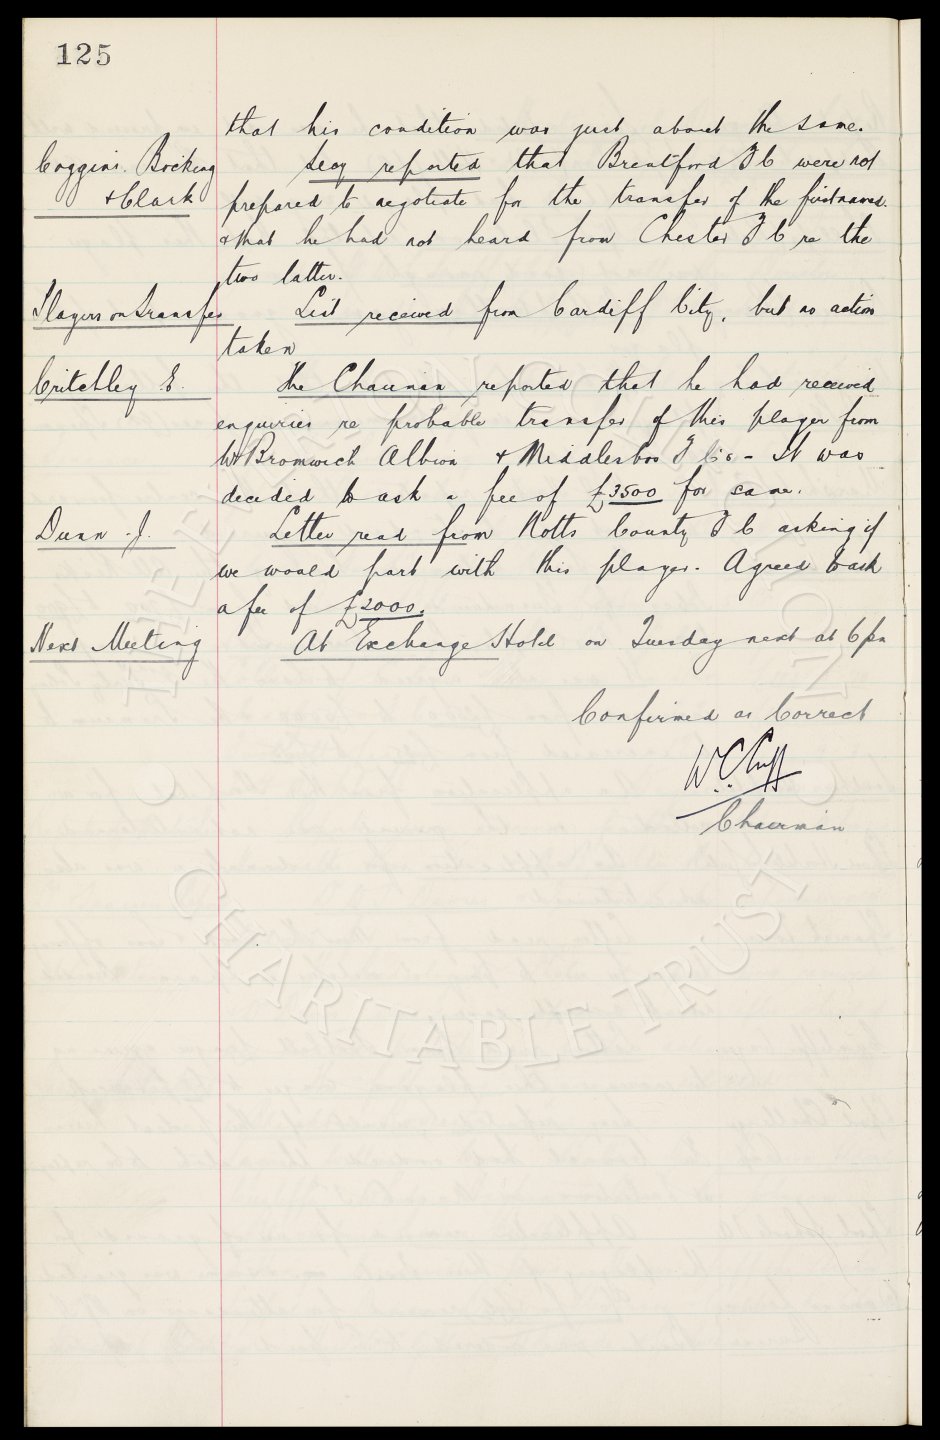 125
that his condition was just about the same.
Coggins. Bocking Secy reported that Brentford F C were not
& Clark prepared to negotiate for the transfer of the firstnamed
& that he had not heard from Chester F C re the
two latter.
Players on Transfer List received from Cardiff City, but no action
taken
Critchley E. The Chairman reported that he had received
enquiries re probable transfer of this player from
W Bromwich Albion & Middlesbro F Cs - It was
decided to ask a fee of £3500 for same.
Dunn . J. Letter read from Notts County F C asking if
we would part with this player. Agreed to ask
a fee of £2000.
Next Meeting At Exchange Hotel on Tuesday next at 6 pm
Confirmed as Correct
W.C. Cuff
Chairman
CHARITABLE TRUST